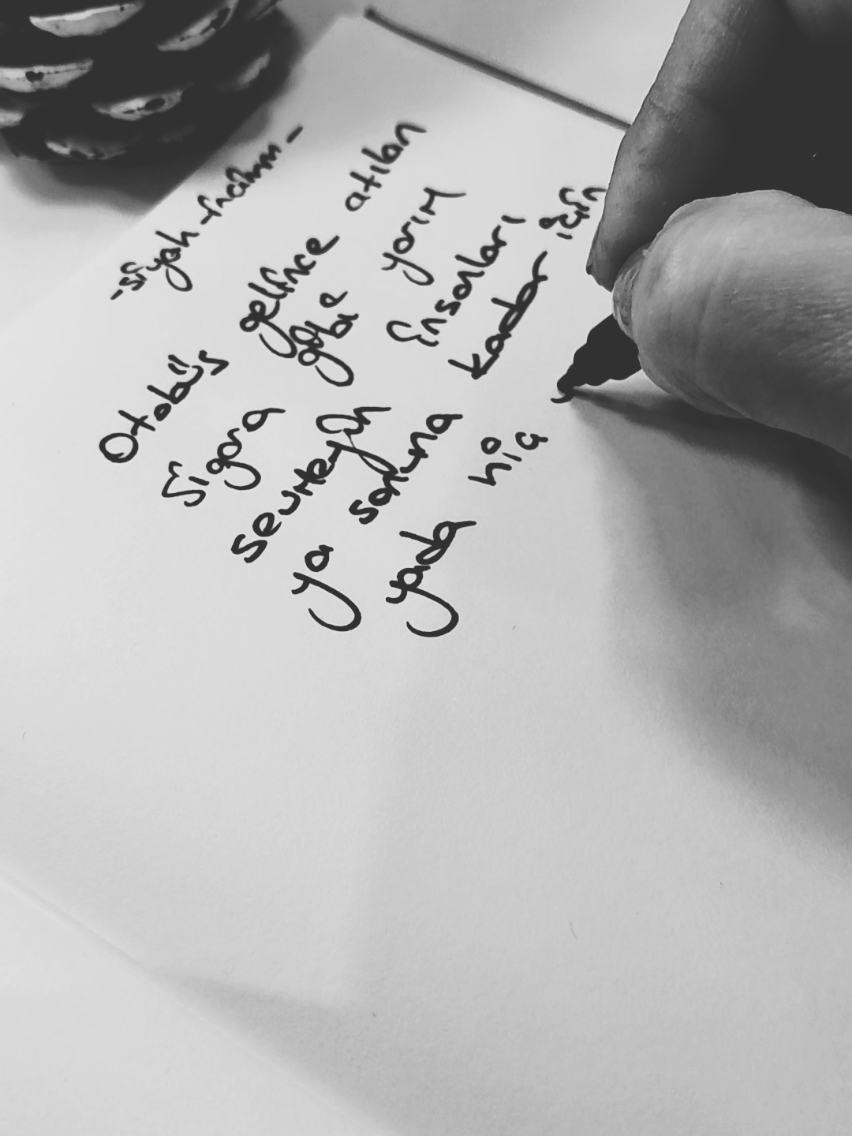 -siyah-incinin-
Otobüs gelince atılan
sigara gibi yarım
sevmeyin insanları
ya sonuna kadar için
yada hiç